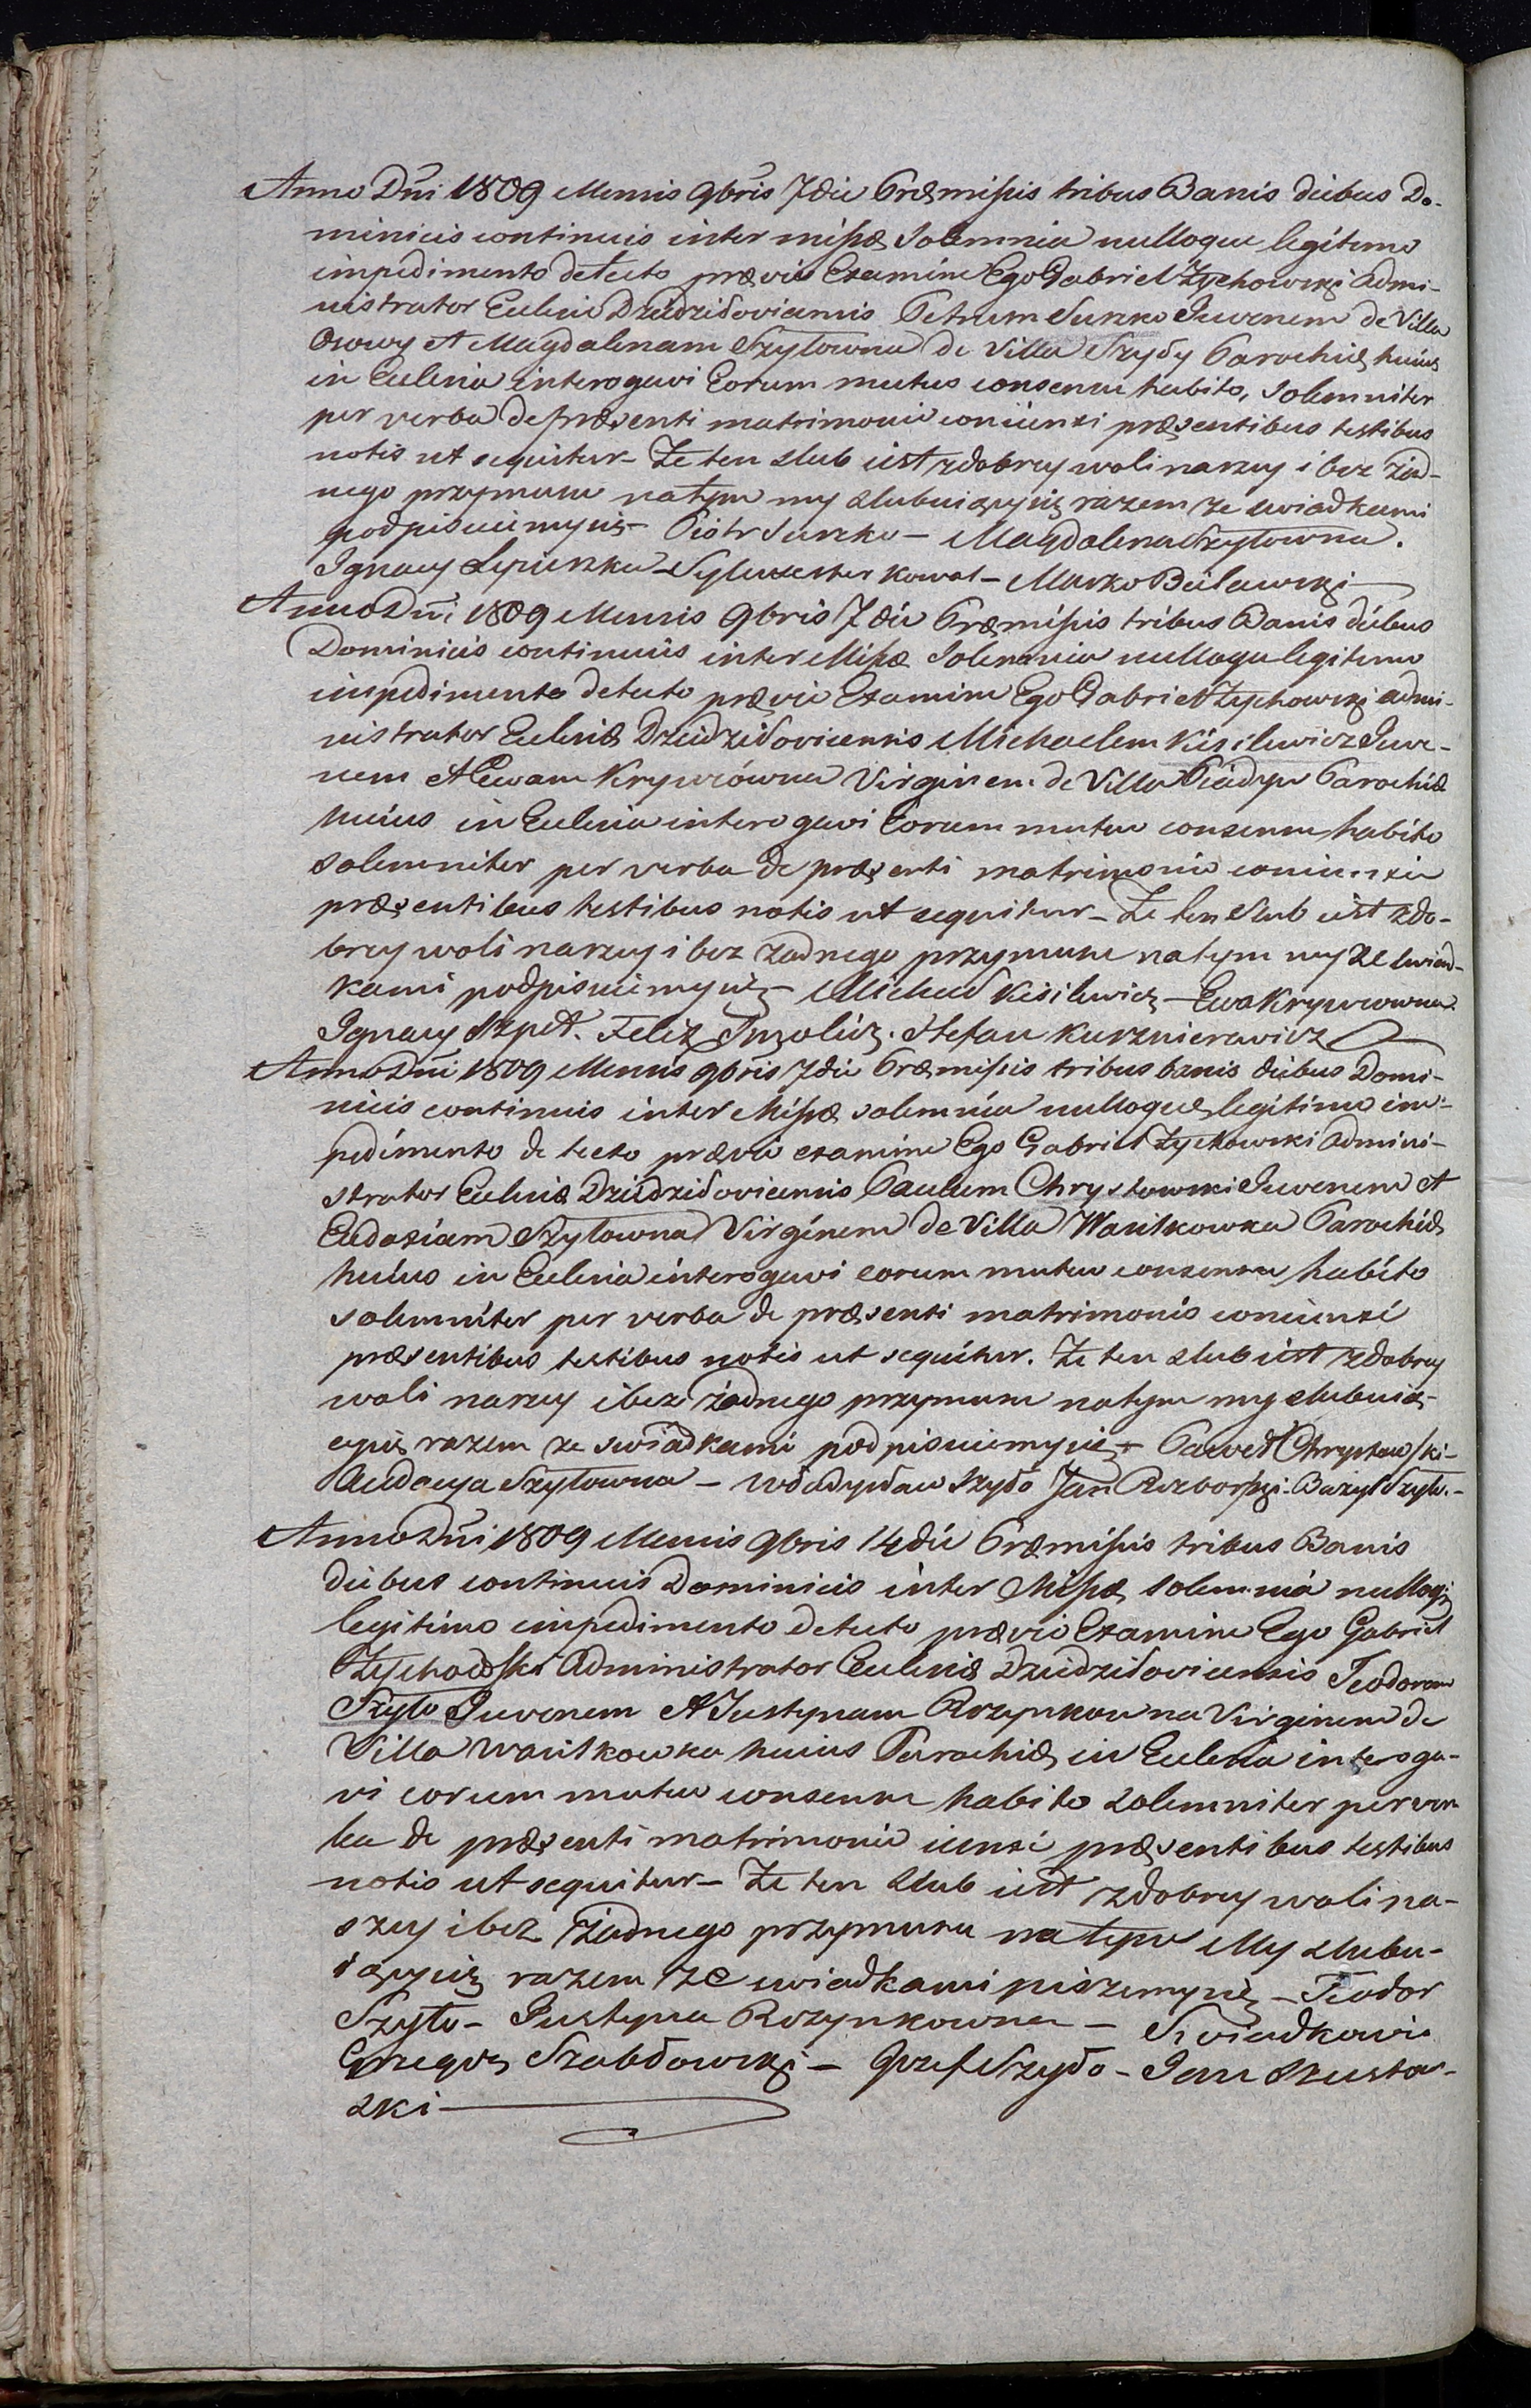 Anno Dni 1809 Mensis 9bris 7 die Præmissis tribus Banis diebus Do-
minicis continuis inter missæ Solemnia nulloque legitimo
impedimento detecto prævio Examine Ego Gabriel Zychowski Admi-
nistrator Eccliæ Dziedziłovicensis Petrum Suszko Iuvenem de Villa
Osowy et Magdalenam Szyłowna de Villa Szyły Parochiæ huius
in Ecclesia interogavi Eorum mutuo consensu habito, solemniter
per verba de præsenti matrimonio coniunxi præsentibus testibus
notis ut sequitur - Ze ten slub iest zdobrey woli naszey i bez żad-
nego przymusu natym my slubuiącysię razem ze swiadkami
podpisuiemysię - Piotr Suszko - Magdalena Szyłowna.
Ignacy Lepieszka - Sylwester Kowal - Marko Bielawski
Anno Dni 1809 Mensis 9bris 7 die Præmissis tribus Banis diebus
Dominicis continuis inter Missæ Solemnia nulloqu legitimo
impedimento detecto prævio Examine Ego Gabriel Zychowski admi-
nistrator Eccliæ Dziedziłovicensis Michaelem Kisilewicz Iuve-
nem et Ewam Krywcówna Virginem de Villa Parochiæ
huius in Ecclesia interogavi Eorum mutuo consensu habito
solemniter per verba de præsenti matrimonio coniunxi
præsentibus testibus notis ut sequitur - Ze ten slub iest zdo-
brey woli naszey i bez zadnego przymusu natym my ze swiad-
kami podpisuiemysię - Michał Kisilewicz - Ewa Krywcowna
Ignacy Szpet. Felix . Stefan Kursznierawicz
Anno Dni 1809 Mensis 9bris 7 die Præmissis tribus banis diebus Domi-
nicis continuis inter Missæ solemnia nulloque legitimo im-
pedimento detecto prævio examine Ego Gabriel Zychowski Admini-
strator Eccliæ Dziedziłovicensis Paulum Chrystowski Iuvenem et
Eudoxiam Szyłowna Virginem de Villa Wasilkowka Parochiæ
huius in Ecclesia interogavi eorum mutuo consensu habito
solemniter per verba de præsenti matrimonio coniunxi
præsentibus testibus notis ut sequitur. Ze ten slub iest zdobrey
woli naszey i bez żadnego przymusu natym my slubuią-
cysię razem ze swiadkami podpisuiemysię - Paweł Chrystowski -
Audocya Szyłowna - Władysław Szyło Jan Rozborski - Bazyl Szyło. -
Anno Dni 1809 Mensis 9bris 14 die Præmissis tribus Banis
diebus continuis Dominicis inter Missæ Solemnia nulloq
legitimo impedimento detecto prævio Examine Ego Gabriel
Zychowski Administrator Eccliæ Dziedziłovicensis Teodorum
Szyło Iuvenem et Justynam Rozynkowna Virginem de
Villa Wasilkowka huius Parochiæ in Ecclesia interoga-
vi eorum mutuo consensu habito solemniter per ver
ba de præsenti matrimonio iunxi præsentibus testibus
notis ut sequitur - Ze ten slub iest zdobrey woli na-
szey i bez żadnego przymusu na tym My slubu-
iącysię razem ze swiadkami piszemysię - Teodor
Szyło - Justyna Rozynkowna - Swiadkowie
Grzegorz Szabłowski - Jozef Szyło - Jan Szustow-
ski